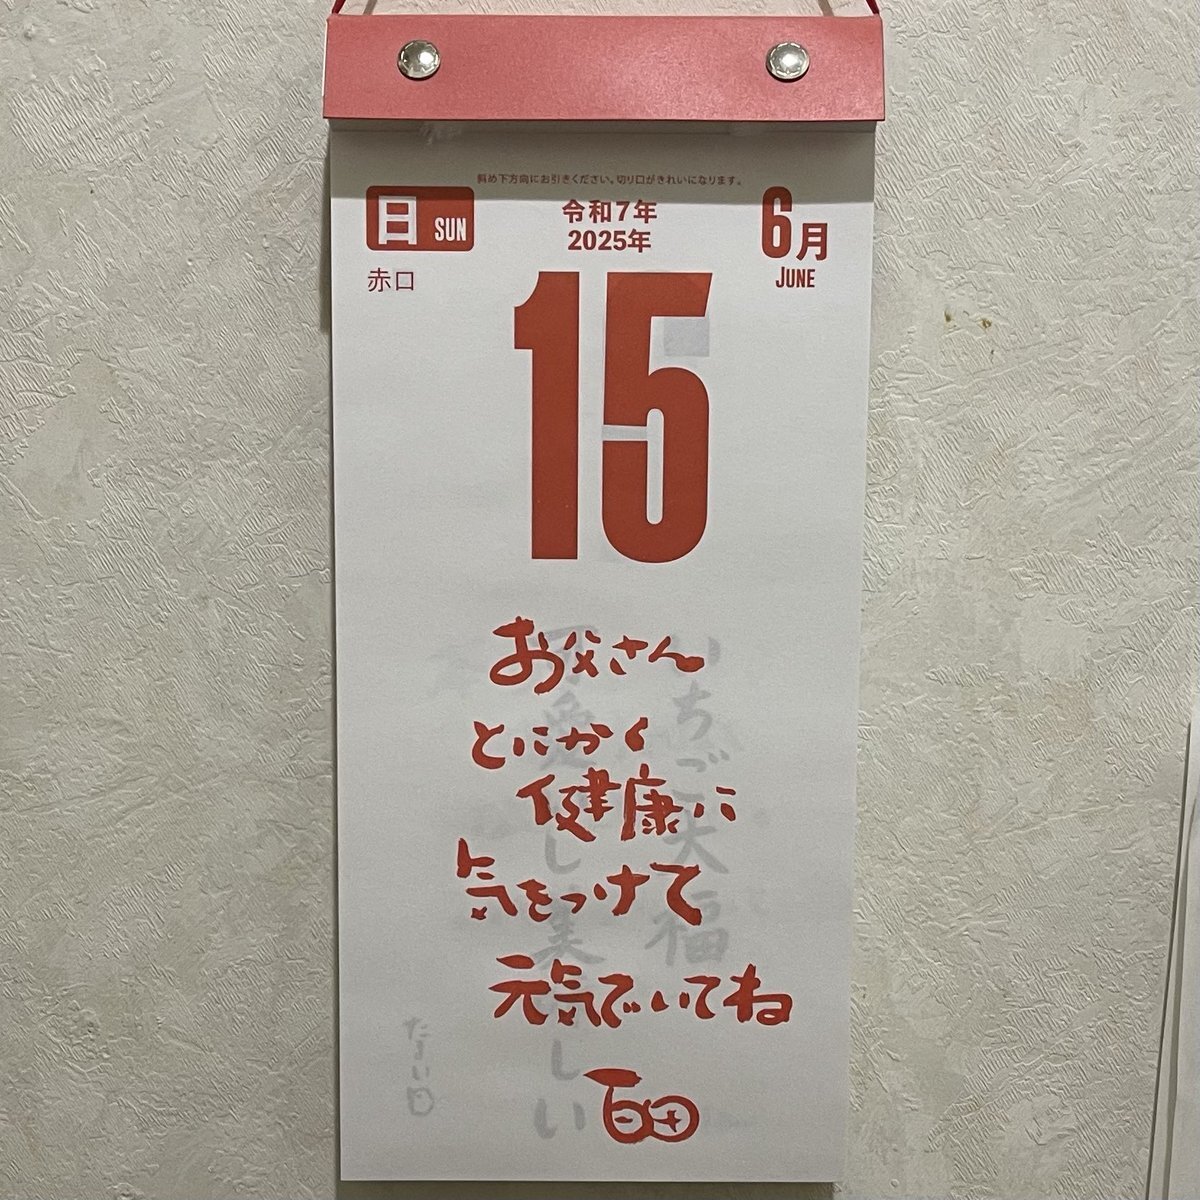 斜め下方向にお引きください。切り口がきれいになります。
日 SUN
赤口
令和7年
2025年
6月
JUNE
15
お父さん
とにかく
健康に
気をつけて
元気でいてね
百田
いちご大福